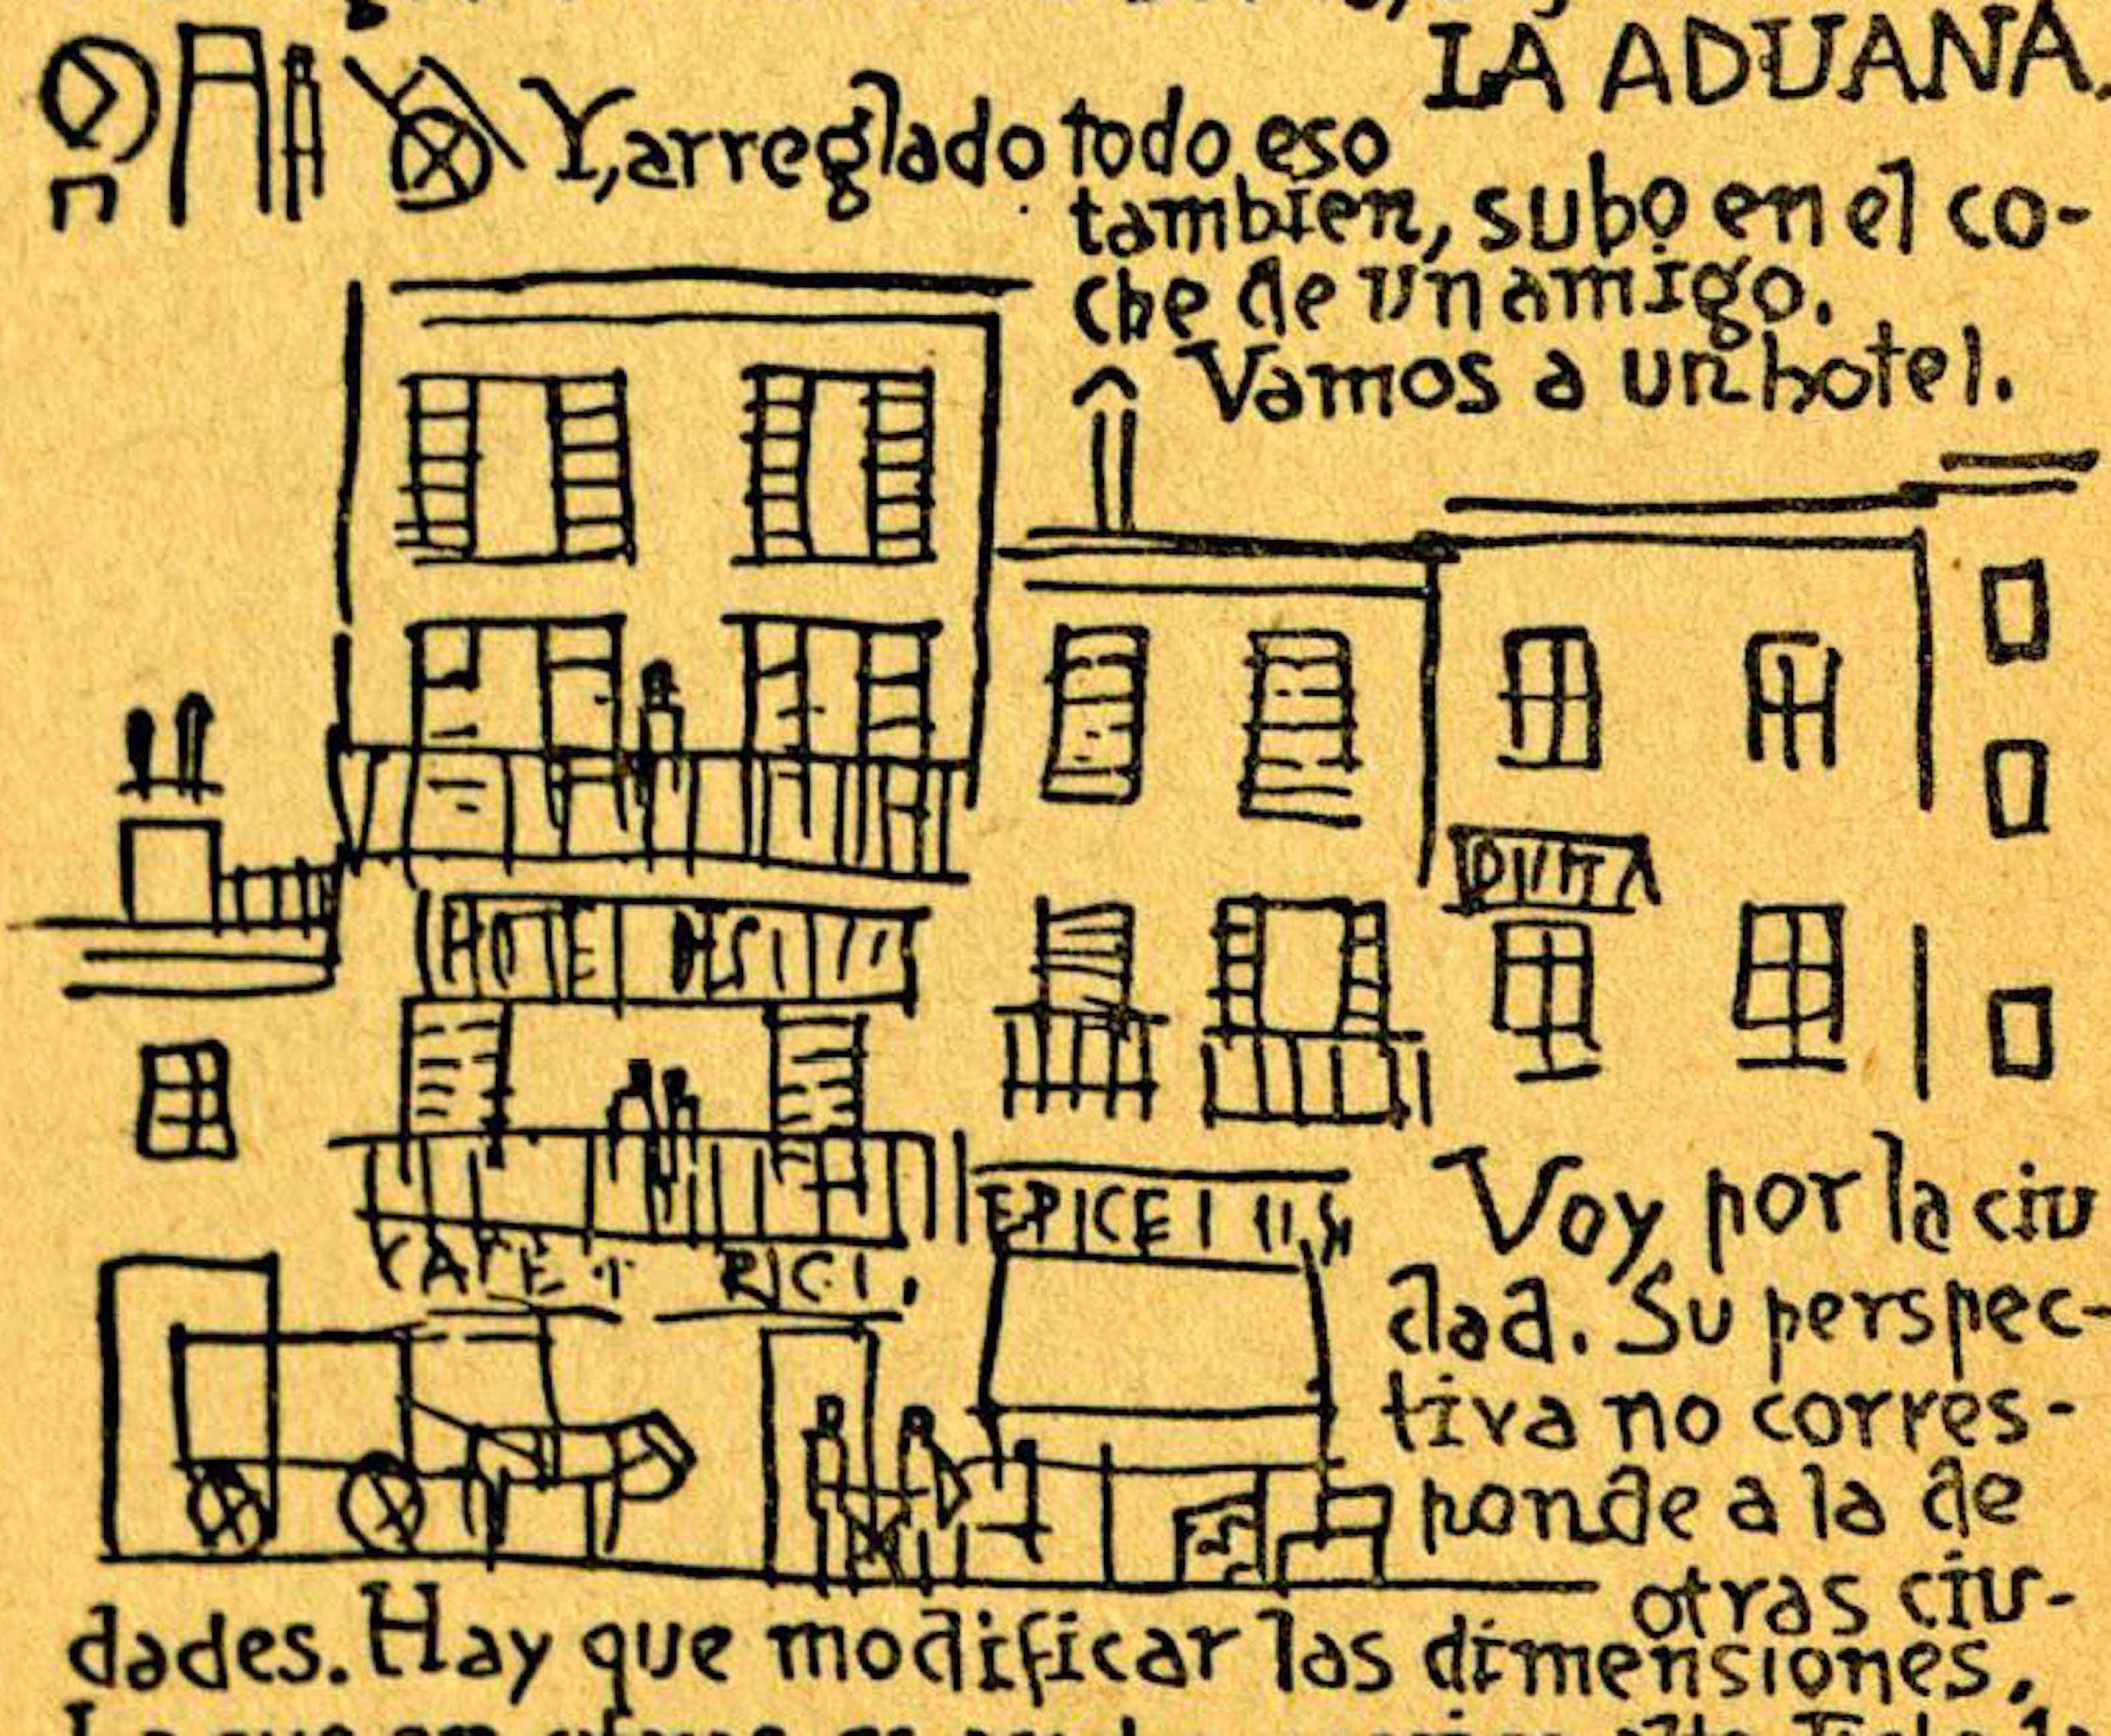 LA ADUANA.
Y, arreglado todo eso
tambien, subo en el co-
che de un amigo.
Vamos a un hotel.
HOTE
CAFE
EPICE
Voy, por la ciu
dad. Su perspec-
tiva no corres-
ponde a la de
otras ciu-
dades. Hay que modificar las dimensiones,